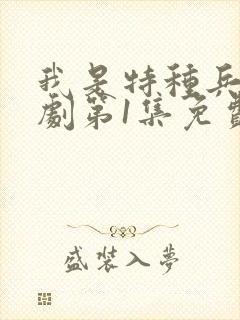 我是特種兵
劇第1集免費
盛裝入夢